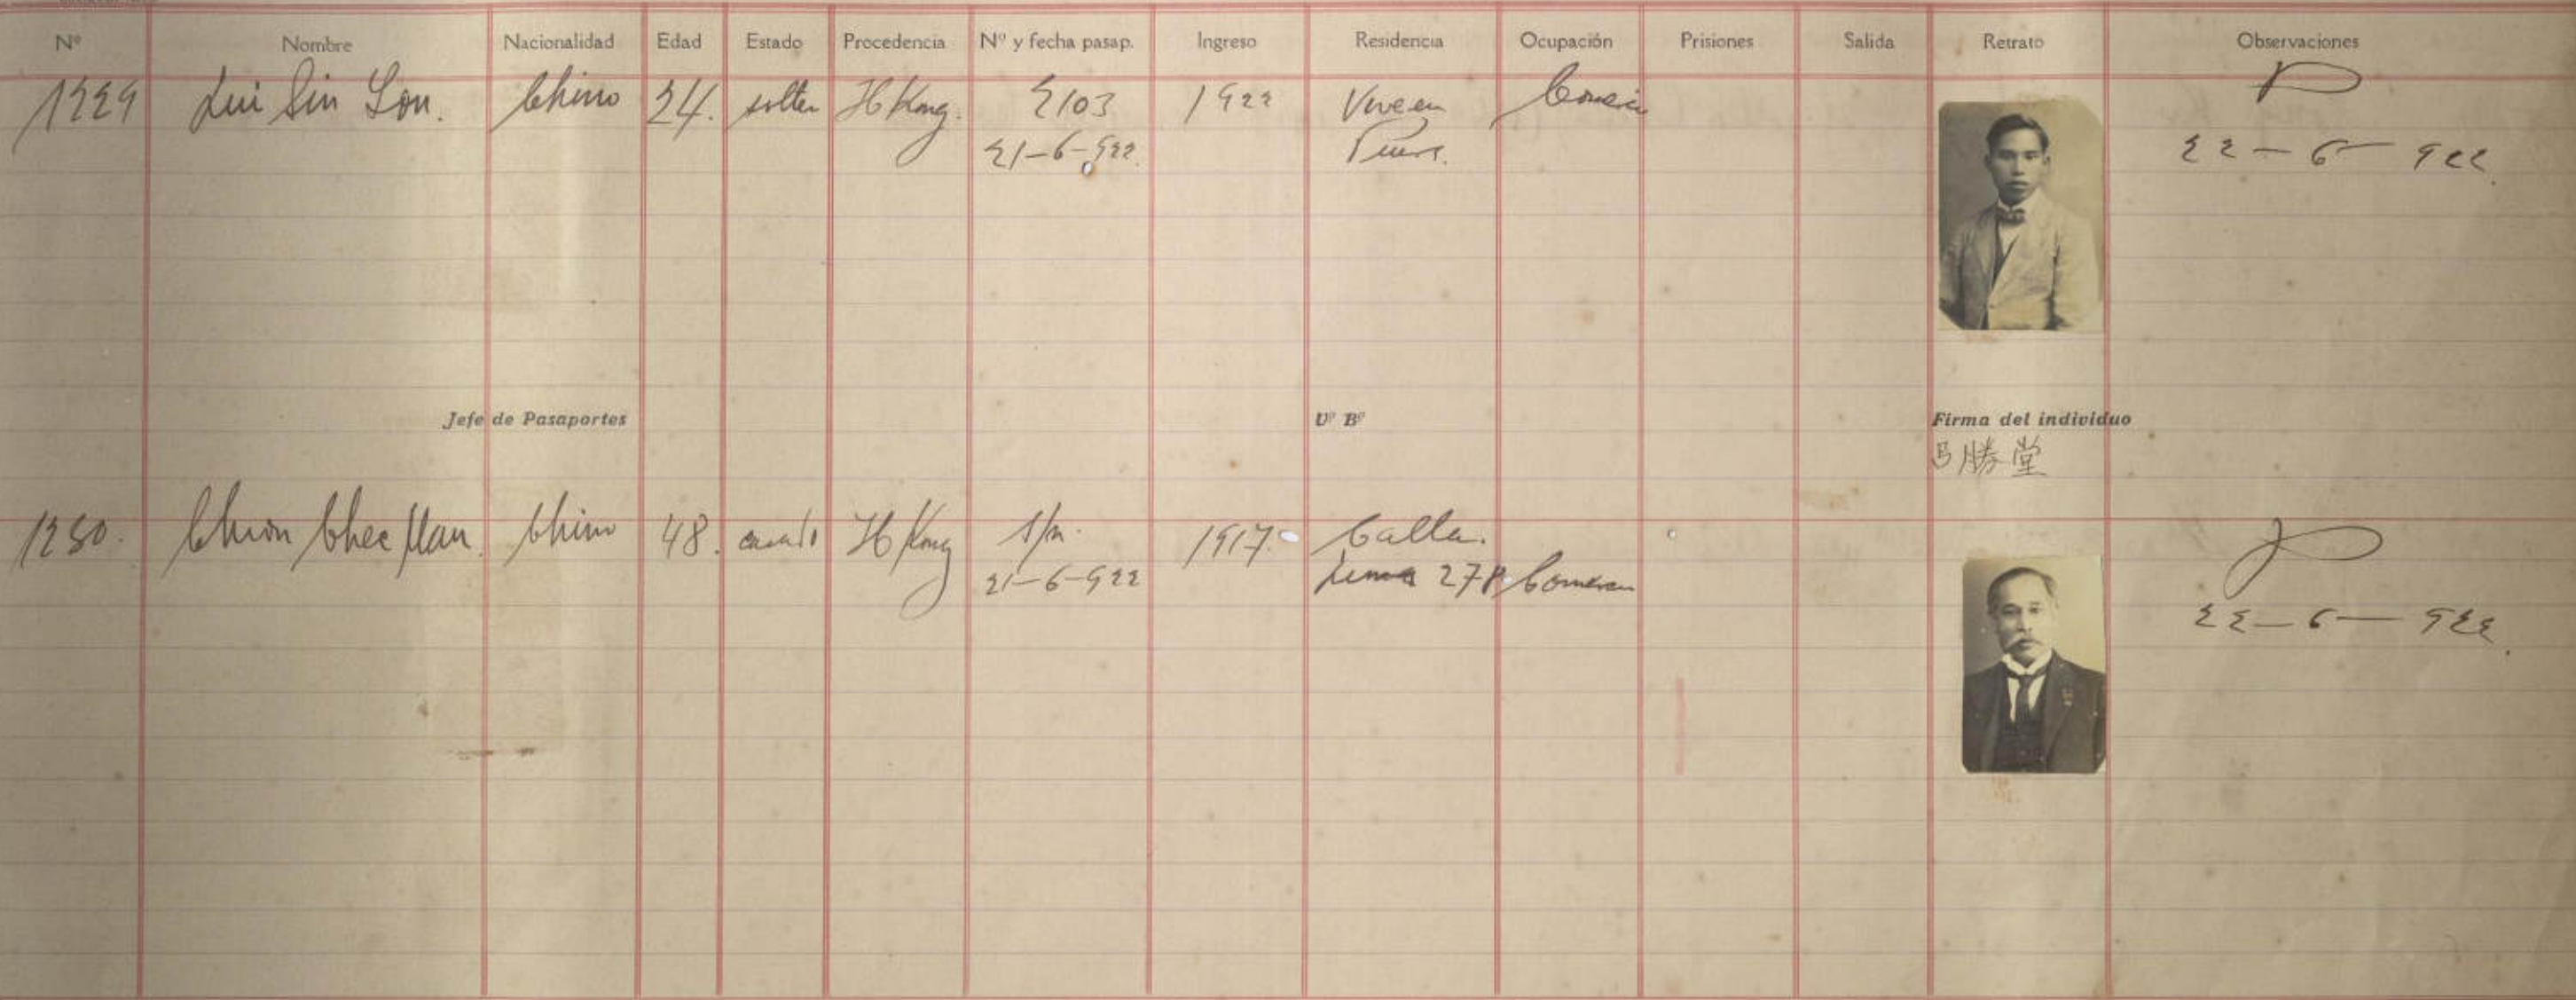 Nº Nombre Nacionalidad Edad Estado Procedencia Nº y fecha pasap. Ingreso Residencia Ocupación Prisiones Salida Retrato Observaciones
1229 Lui Sin Lon. Chino 24. solter H Kong. 2103 1922 Vive en
21-6-922. Piura. 22-6-922.
Jefe de Pasaportes Vº Bº Firma del individuo
呂勝堂
1230. Chion Chee Man. Chino 48. casado H Kong s/n. 1917. Calla.
21-6-922 Lima 278 22-6-922.